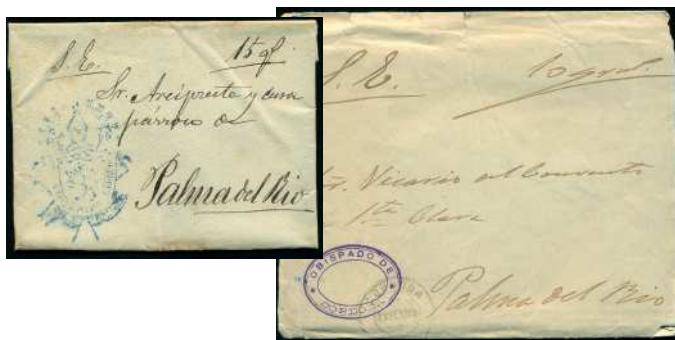 S. E. 15 gs.
Sr. Arcipreste y cura
párroco de
Palma del Rio
S. E.
Sr. Vicario del Convento
Sta Clara
Palma del Rio
OBISPADO DE